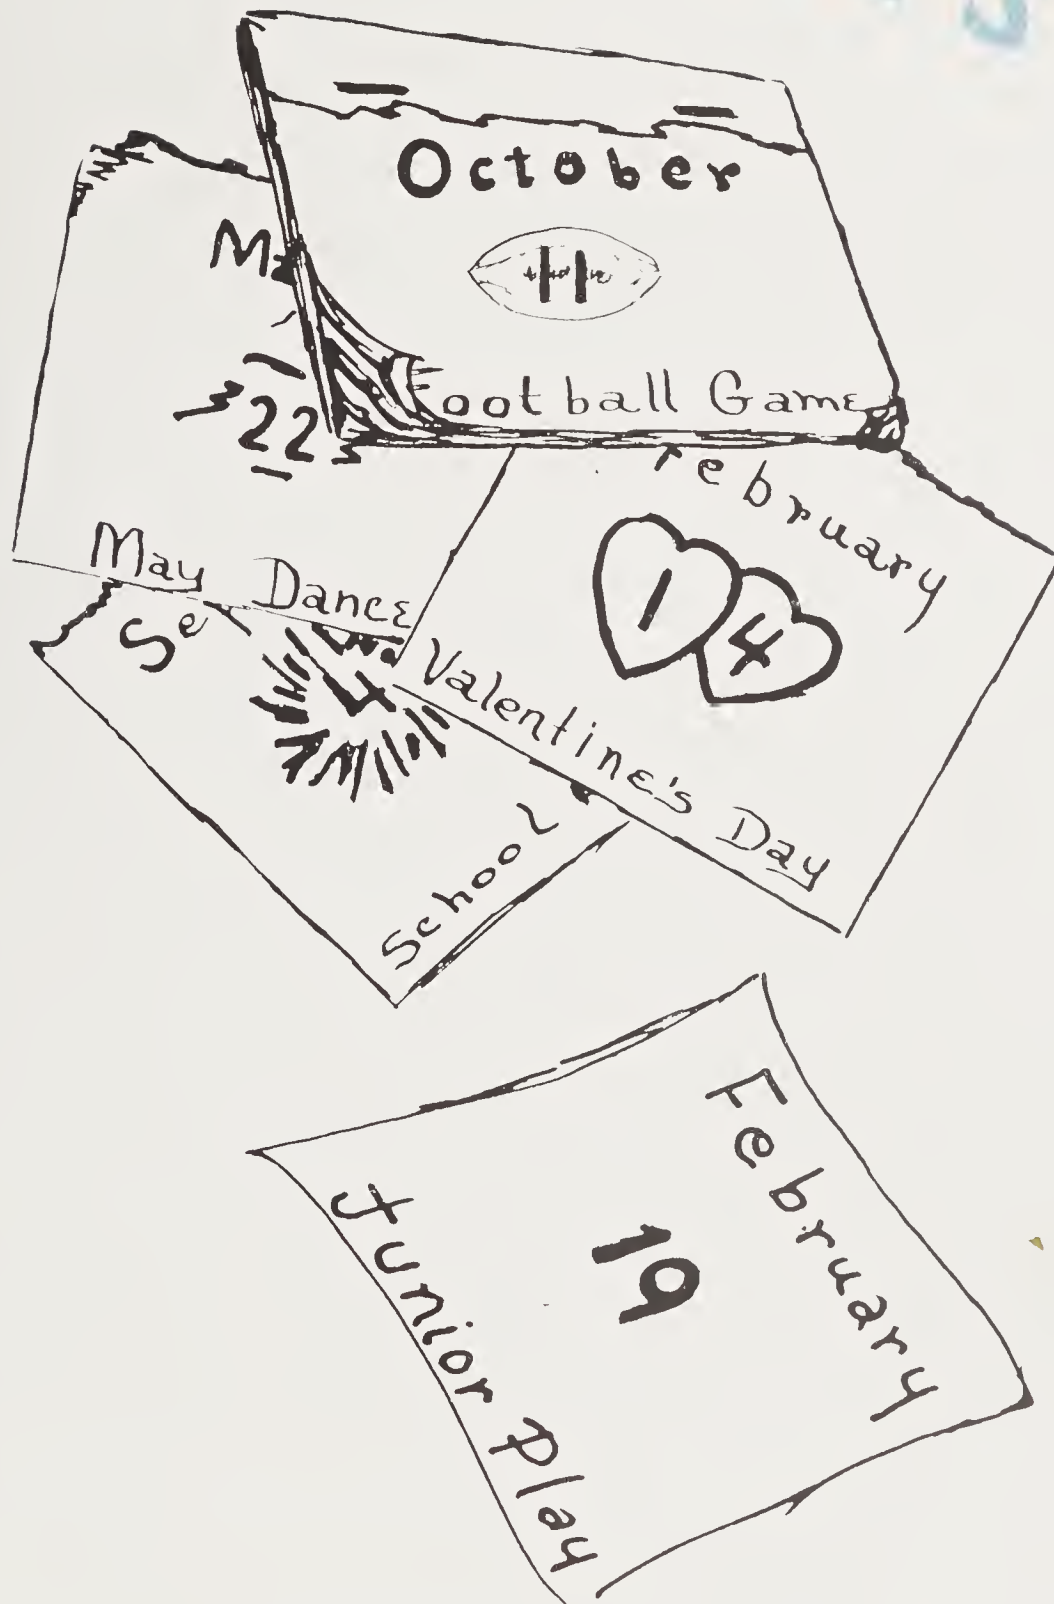 October
11
Football Game
Ma
22
May Dance
February
14
Valentine's Day
Se
4
School
February
19
Junior Play